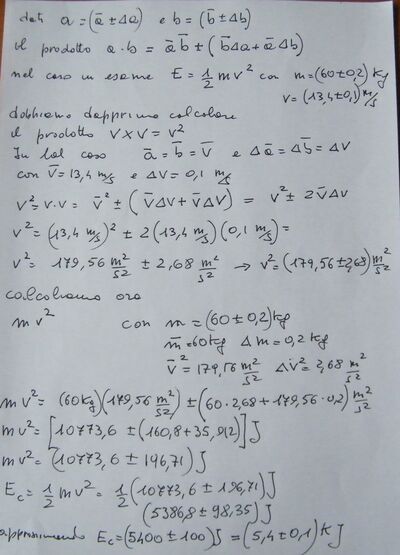 dati a = (ā ± Δa) e b = (b̄ ± Δb)
il prodotto a·b = ā b̄ ± (b̄Δa + āΔb)
nel caso in esame E = 1/2 mv² con m = (60±0,2) kg
v = (13,4±0,1) m/s
dobbiamo dapprima calcolare
il prodotto V×V = V²
In tal caso ā = b̄ = v̄ e Δā = Δb̄ = ΔV
con v̄ = 13,4 m/s e ΔV = 0,1 m/s
V² = V·V = v̄² ± (v̄ΔV + v̄ΔV) = V² ± 2v̄ΔV
V² = (13,4 m/s)² ± 2(13,4 m/s)(0,1 m/s) =
V² = 179,56 m²/s² ± 2,68 m²/s² → V² = (179,56 ± 2,68) m²/s²
calcoliamo ora
mv² con m = (60±0,2) kg
m̄ = 60 kg Δm = 0,2 kg
v̄² = 179,56 m²/s² Δv² = 2,68 m²/s²
mv² = (60 kg)(179,56 m²/s²) ± (60·2,68 + 179,56·0,2) m²/s²
mv² = [10773,6 ± (160,8 + 35,912)] J
mv² = (10773,6 ± 196,71) J
Ec = 1/2 mv² = 1/2 (10773,6 ± 196,71) J
(5386,8 ± 98,35) J
approssimando Ec = (5400 ± 100) J = (5,4 ± 0,1) KJ